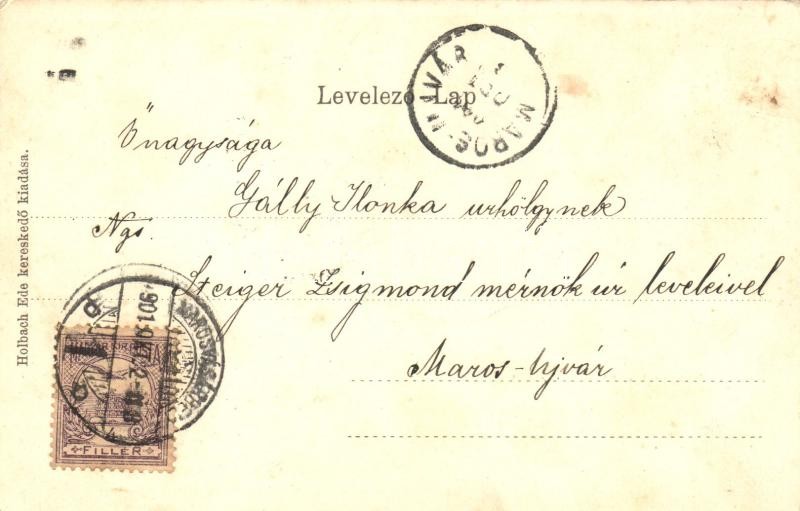 Levelező Lap
MAROS-UJVÁR
Őnagysága
Gálly Ilonka urhölgynek
Ngs.
Steiger Zsigmond mérnök úr leveleivel
Maros-Ujvár
Holbach Ede kereskedő kiadása.
MAROSVÁSÁRHELY
FILLÉR